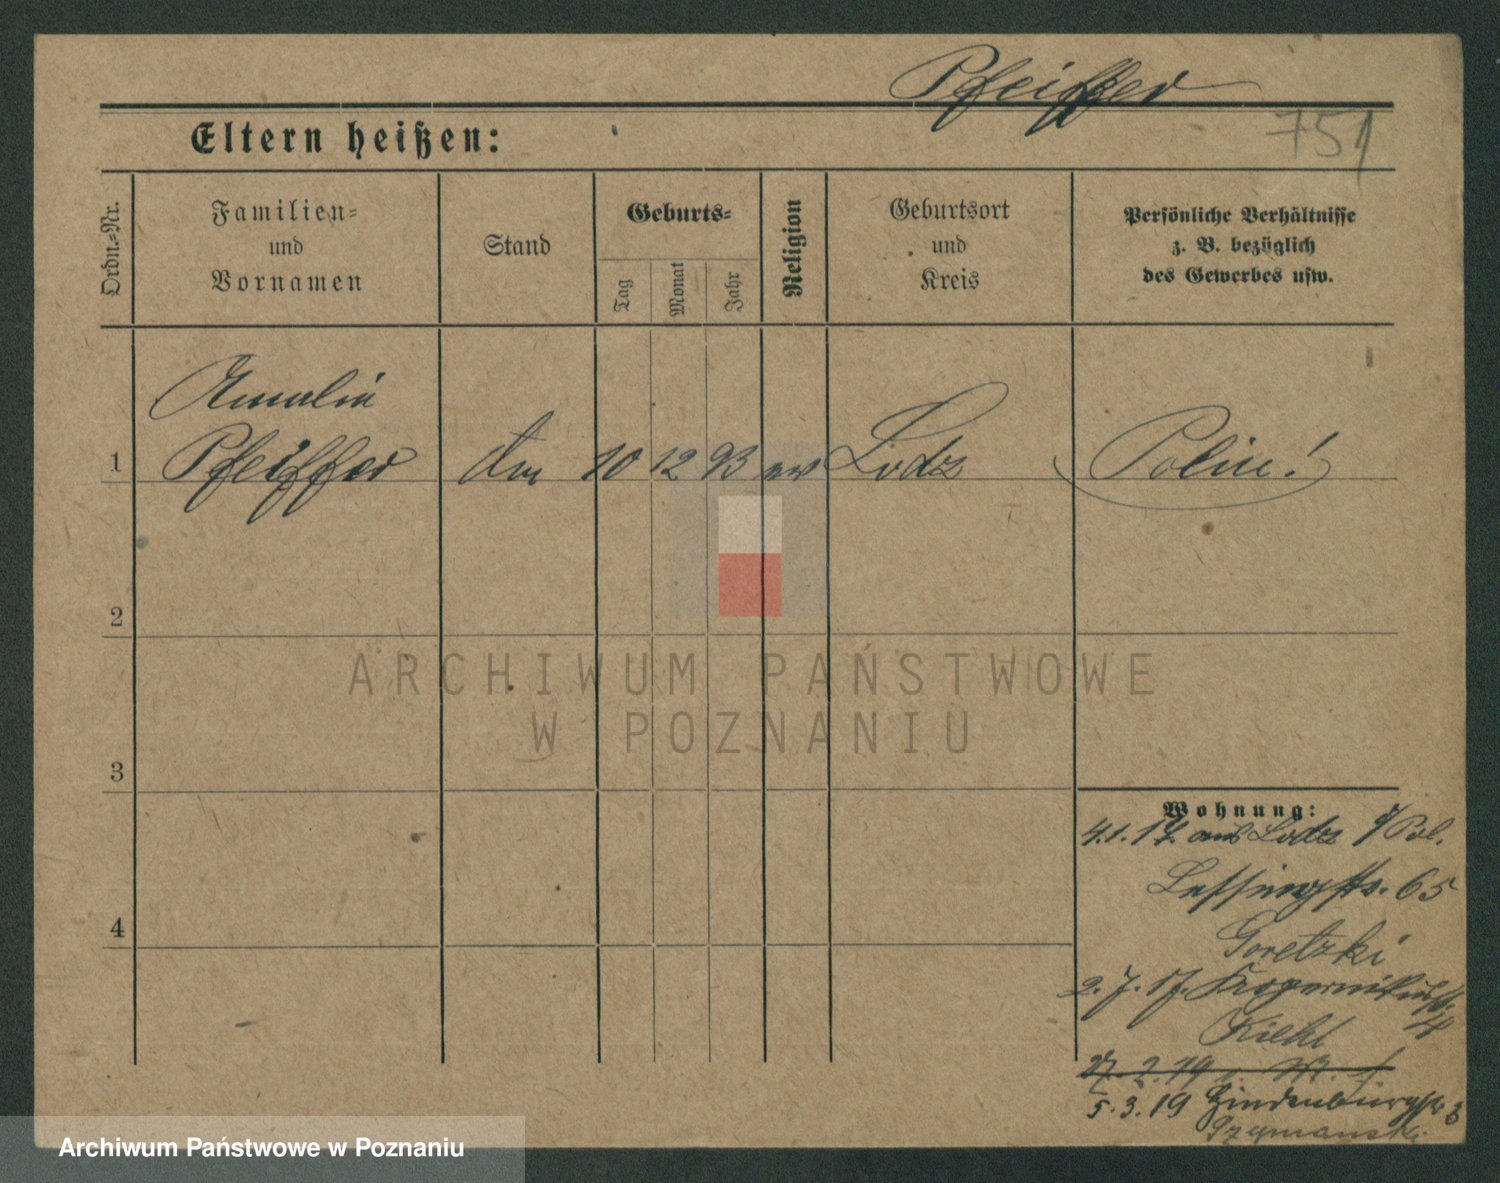 Pfeiffer
751
Eltern heißen:
Ordn.-Nr.
Familien-
und
Vornamen
Stand
Geburts-
Tag
Monat
Jahr
Religion
Geburtsort
und
Kreis
Persönliche Verhältnisse
z. B. bezüglich
des Gewerbes usw.
Amalie
1 Pfeiffer 10 12 93 ev Lodz Polin!
2
3
4
Wohnung:
4.1.17. aus Lodz Pol.
Lessingstr. 65
Goretzki
2.7.17. Kopernikusstr.
4
Kiehl
5.3.19 Hindenburgstr 3
Szymanski
ARCHIWUM PAŃSTWOWE
W POZNANIU
Archiwum Państwowe w Poznaniu